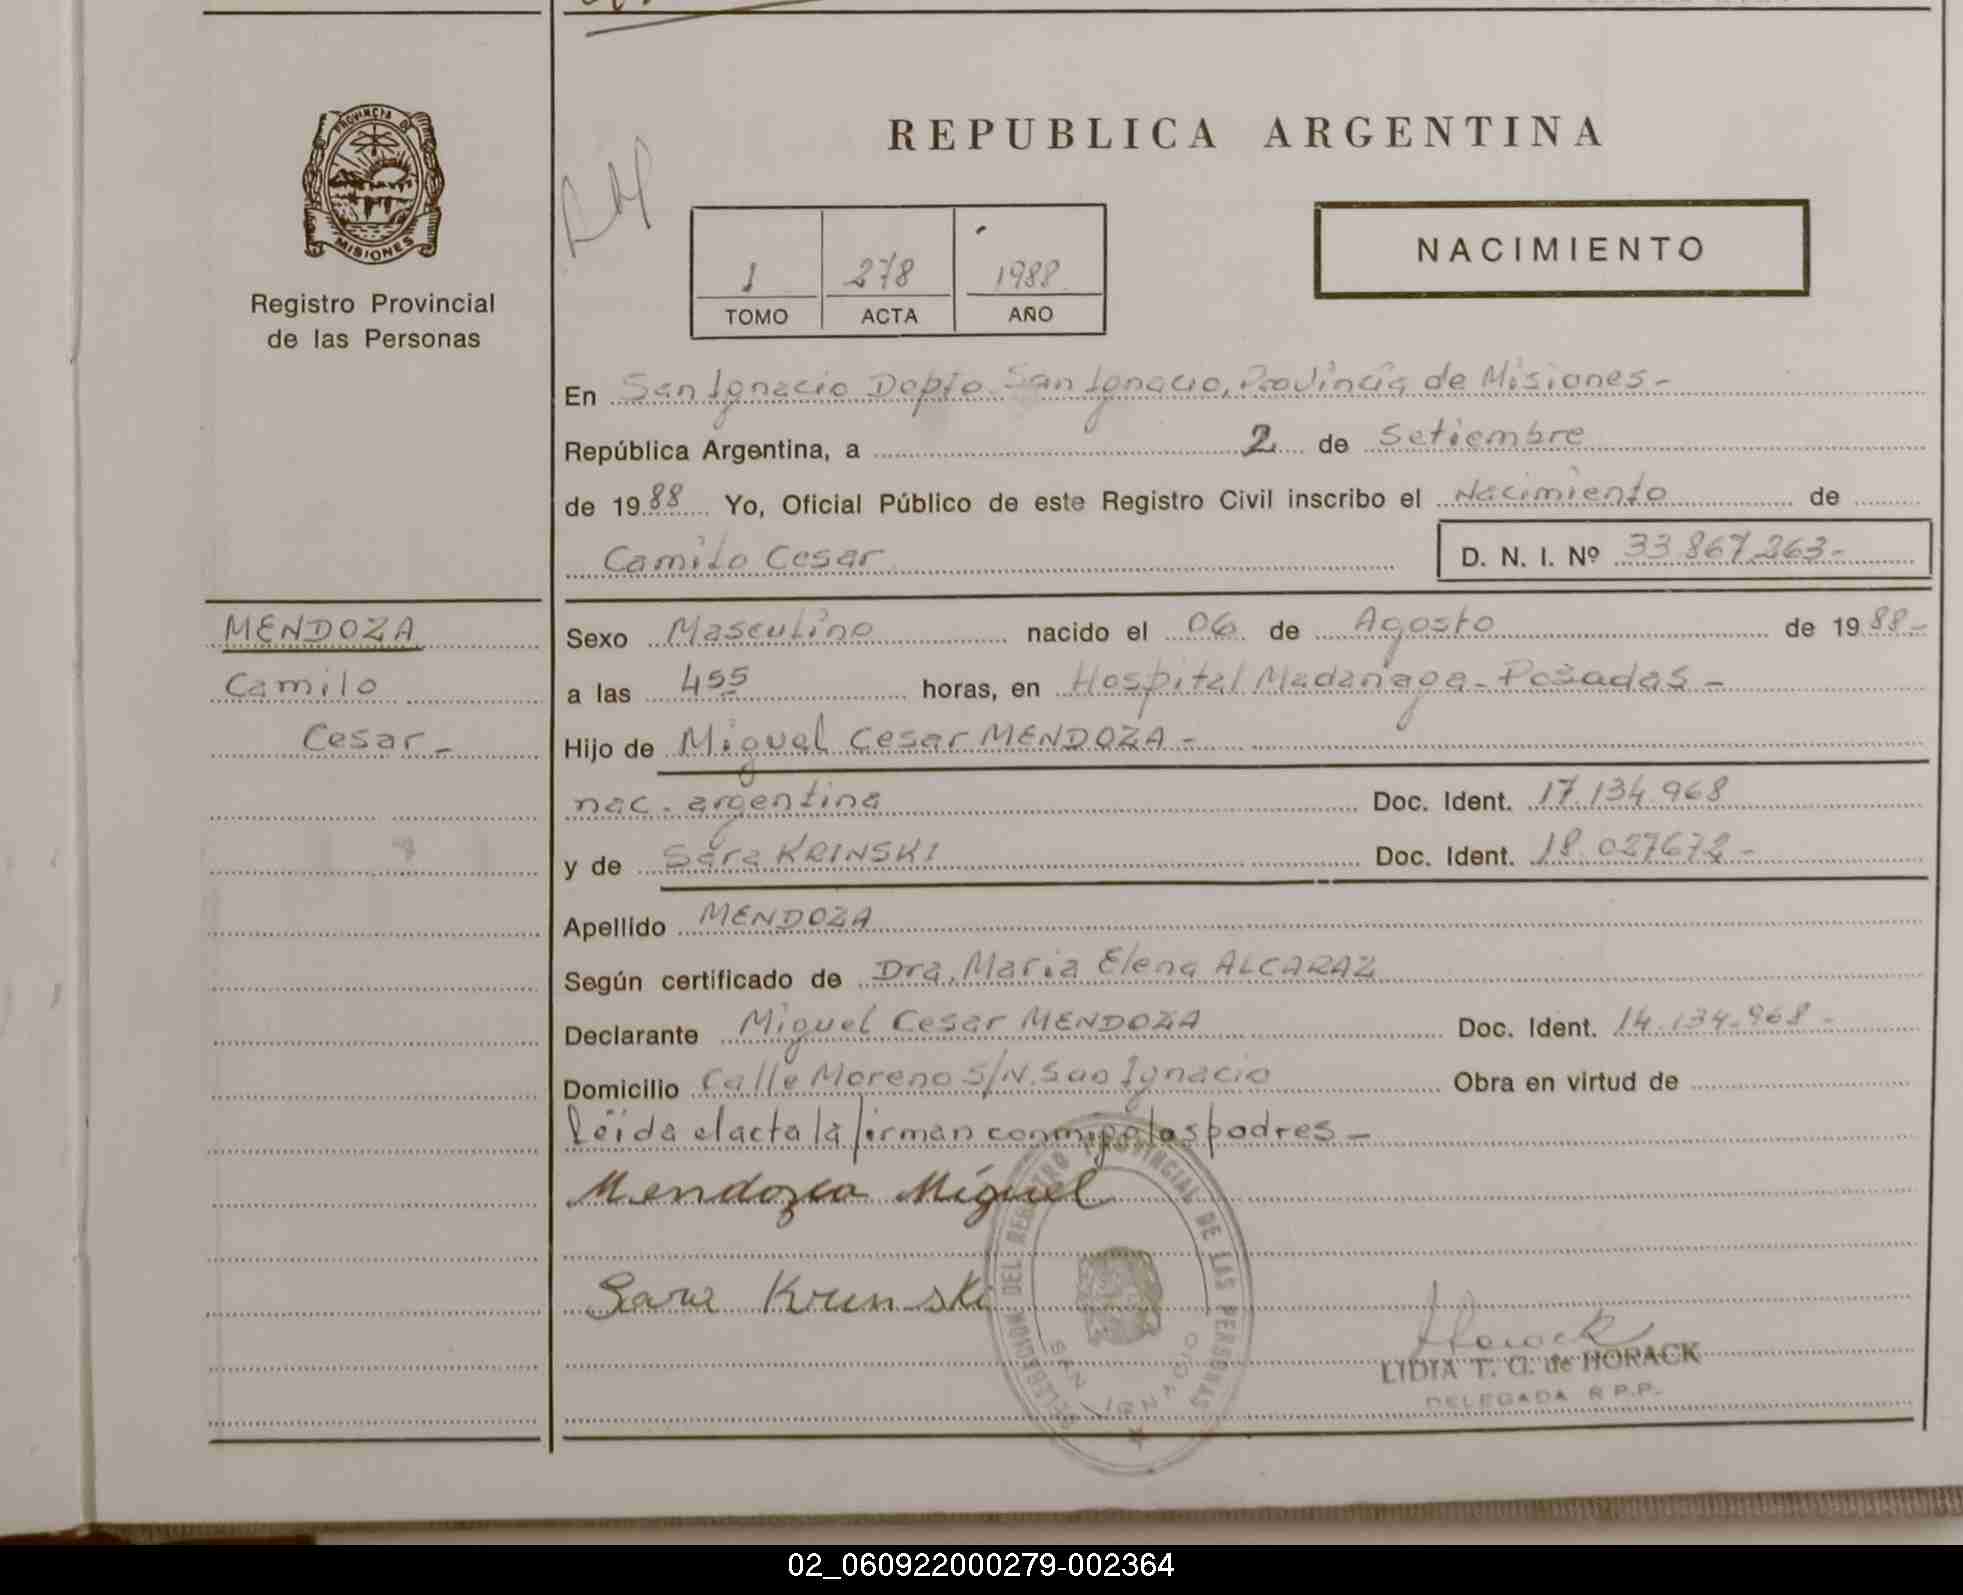 PROVINCIA DE
MISIONES
Registro Provincial
de las Personas
REPUBLICA ARGENTINA
NACIMIENTO
1 278 1988
TOMO ACTA AÑO
En San Ignacio Dopto San Ignacio, Provincia de Misiones-
República Argentina, a 2 de Setiembre
de 1988 Yo, Oficial Público de este Registro Civil inscribo el Nacimiento de
Camilo Cesar D. N. I. Nº 33.867.263-
MENDOZA
Camilo
Cesar-
Sexo Masculino nacido el 06 de Agosto de 1988-
a las 455 horas, en Hospital Madariaga-Posadas-
Hijo de Miguel Cesar MENDOZA-
nac. argentina Doc. Ident. 17.134.968
y de Sara KRINSKI Doc. Ident. 18.027672-
Apellido MENDOZA
Según certificado de Dra. Maria Elena ALCARAZ
Declarante Miguel Cesar MENDOZA Doc. Ident. 14.134.968-
Domicilio Calle Moreno S/N. San Ignacio Obra en virtud de
Leida el acta la firman conmigo los padres-
Mendoza Miguel
Sara Krunski
DELEGACION DEL REGISTRO PROVINCIAL DE LAS PERSONAS
SAN IGNACIO
Horack
LIDIA T. G. de HORACK
DELEGADA R.P.P.
02_060922000279-002364